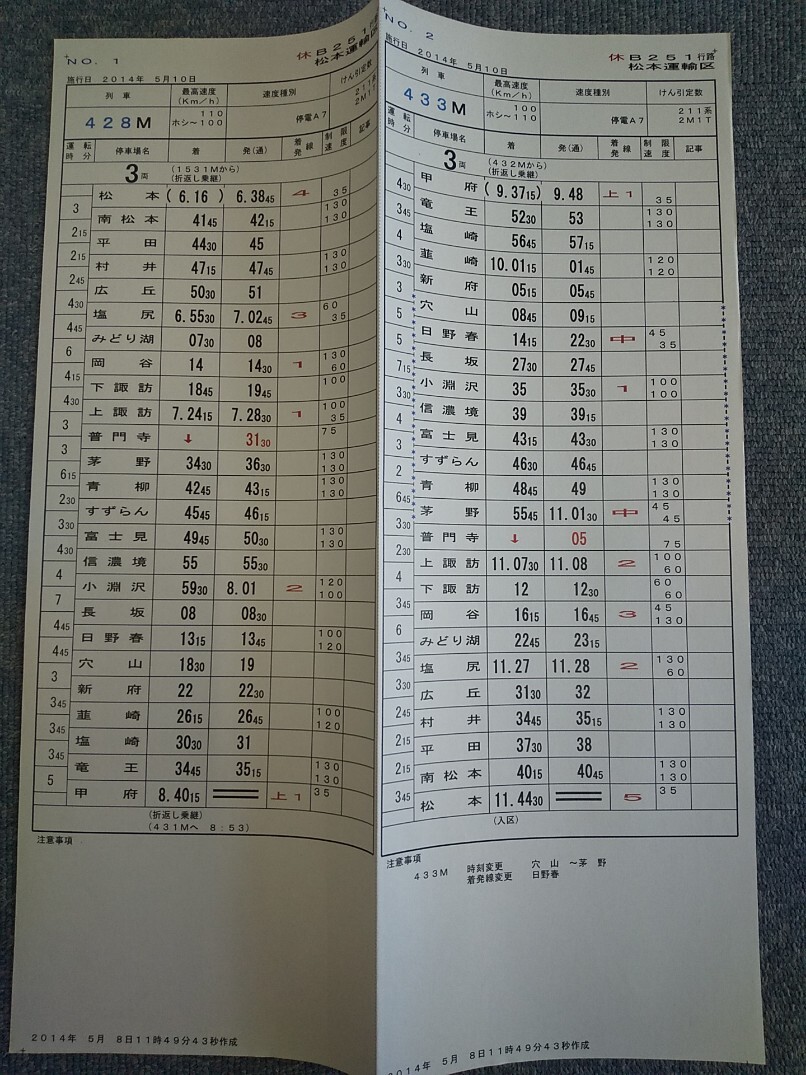 NO. 1
休B251行路
松本運輸区
施行日 2014年 5月10日
列車 最高速度(Km/h) 速度種別 けん引定数
428M 110 ホシ~100 停電A7 211系 2M1T
運転時分 停車場名 着 発(通) 着発線 制限速度 記事
3両 (1531Mから) (折返し乗継)
松本 (6.16) 6.3845 4 35
3
南松本 4145 4215 130 130
215
平田 4430 45
215
村井 4715 4745 130 130
245
広丘 5030 51
430
塩尻 6.5530 7.0245 3 60 35
445
みどり湖 0730 08
6
岡谷 14 1430 1 130 60
415
下諏訪 1845 1945 100
430
上諏訪 7.2415 7.2830 1 100 35
3
普門寺 ↓ 3130 75
3
茅野 3430 3630 130 130
615
青柳 4245 4315 130 130
230
すずらん 4545 4615
330
富士見 4945 5030 130 130
430
信濃境 55 5530
4
小淵沢 5930 8.01 2 120 100
7
長坂 08 0830
445
日野春 1315 1345 100 120
445
穴山 1830 19
3
新府 22 2230
345
韮崎 2615 2645 100 120
345
塩崎 3030 31
345
竜王 3445 3515 130 130
5
甲府 8.4015 ══ 上1 35
(折返し乗継)
(431Mへ 8:53)
注意事項
2014年 5月 8日11時49分43秒作成
NO. 2
休B251行路
松本運輸区
施行日 2014年 5月10日
列車 最高速度(Km/h) 速度種別 けん引定数
433M 100 ホシ~100 停電A7 211系 2M1T
運転時分 停車場名 着 発(通) 着発線 制限速度 記事
3両 (432Mから) (折返し乗継)
甲府 (9.3715) 9.48 上1 35
430
竜王 5230 53 130 130
345
塩崎 5645 5715
4
韮崎 10.0115 0145 120 120
330
新府 0515 0545
3
穴山 0845 0915
5
日野春 1415 2230 中 45 35
5
長坂 2730 2745
715
小淵沢 35 3530 1 100 100
330
信濃境 39 3915
4
富士見 4315 4330 130 130
3
すずらん 4630 4645
2
青柳 4845 49 130 130
645
茅野 5545 11.0130 中 45 45
330
普門寺 ↓ 05 75
230
上諏訪 11.0730 11.08 2 100 60
4
下諏訪 12 1230 60 60
345
岡谷 1615 1645 3 45 130
6
みどり湖 2245 2315
345
塩尻 11.27 11.28 2 130 60
330
広丘 3130 32
245
村井 3445 3515 130 130
215
平田 3730 38
215
南松本 4015 4045 130 130
345
松本 11.4430 ══ 5 35
(入区)
注意事項
433M 時刻変更 穴山 ~茅野
着発線変更 日野春
2014年 5月 8日11時49分43秒作成